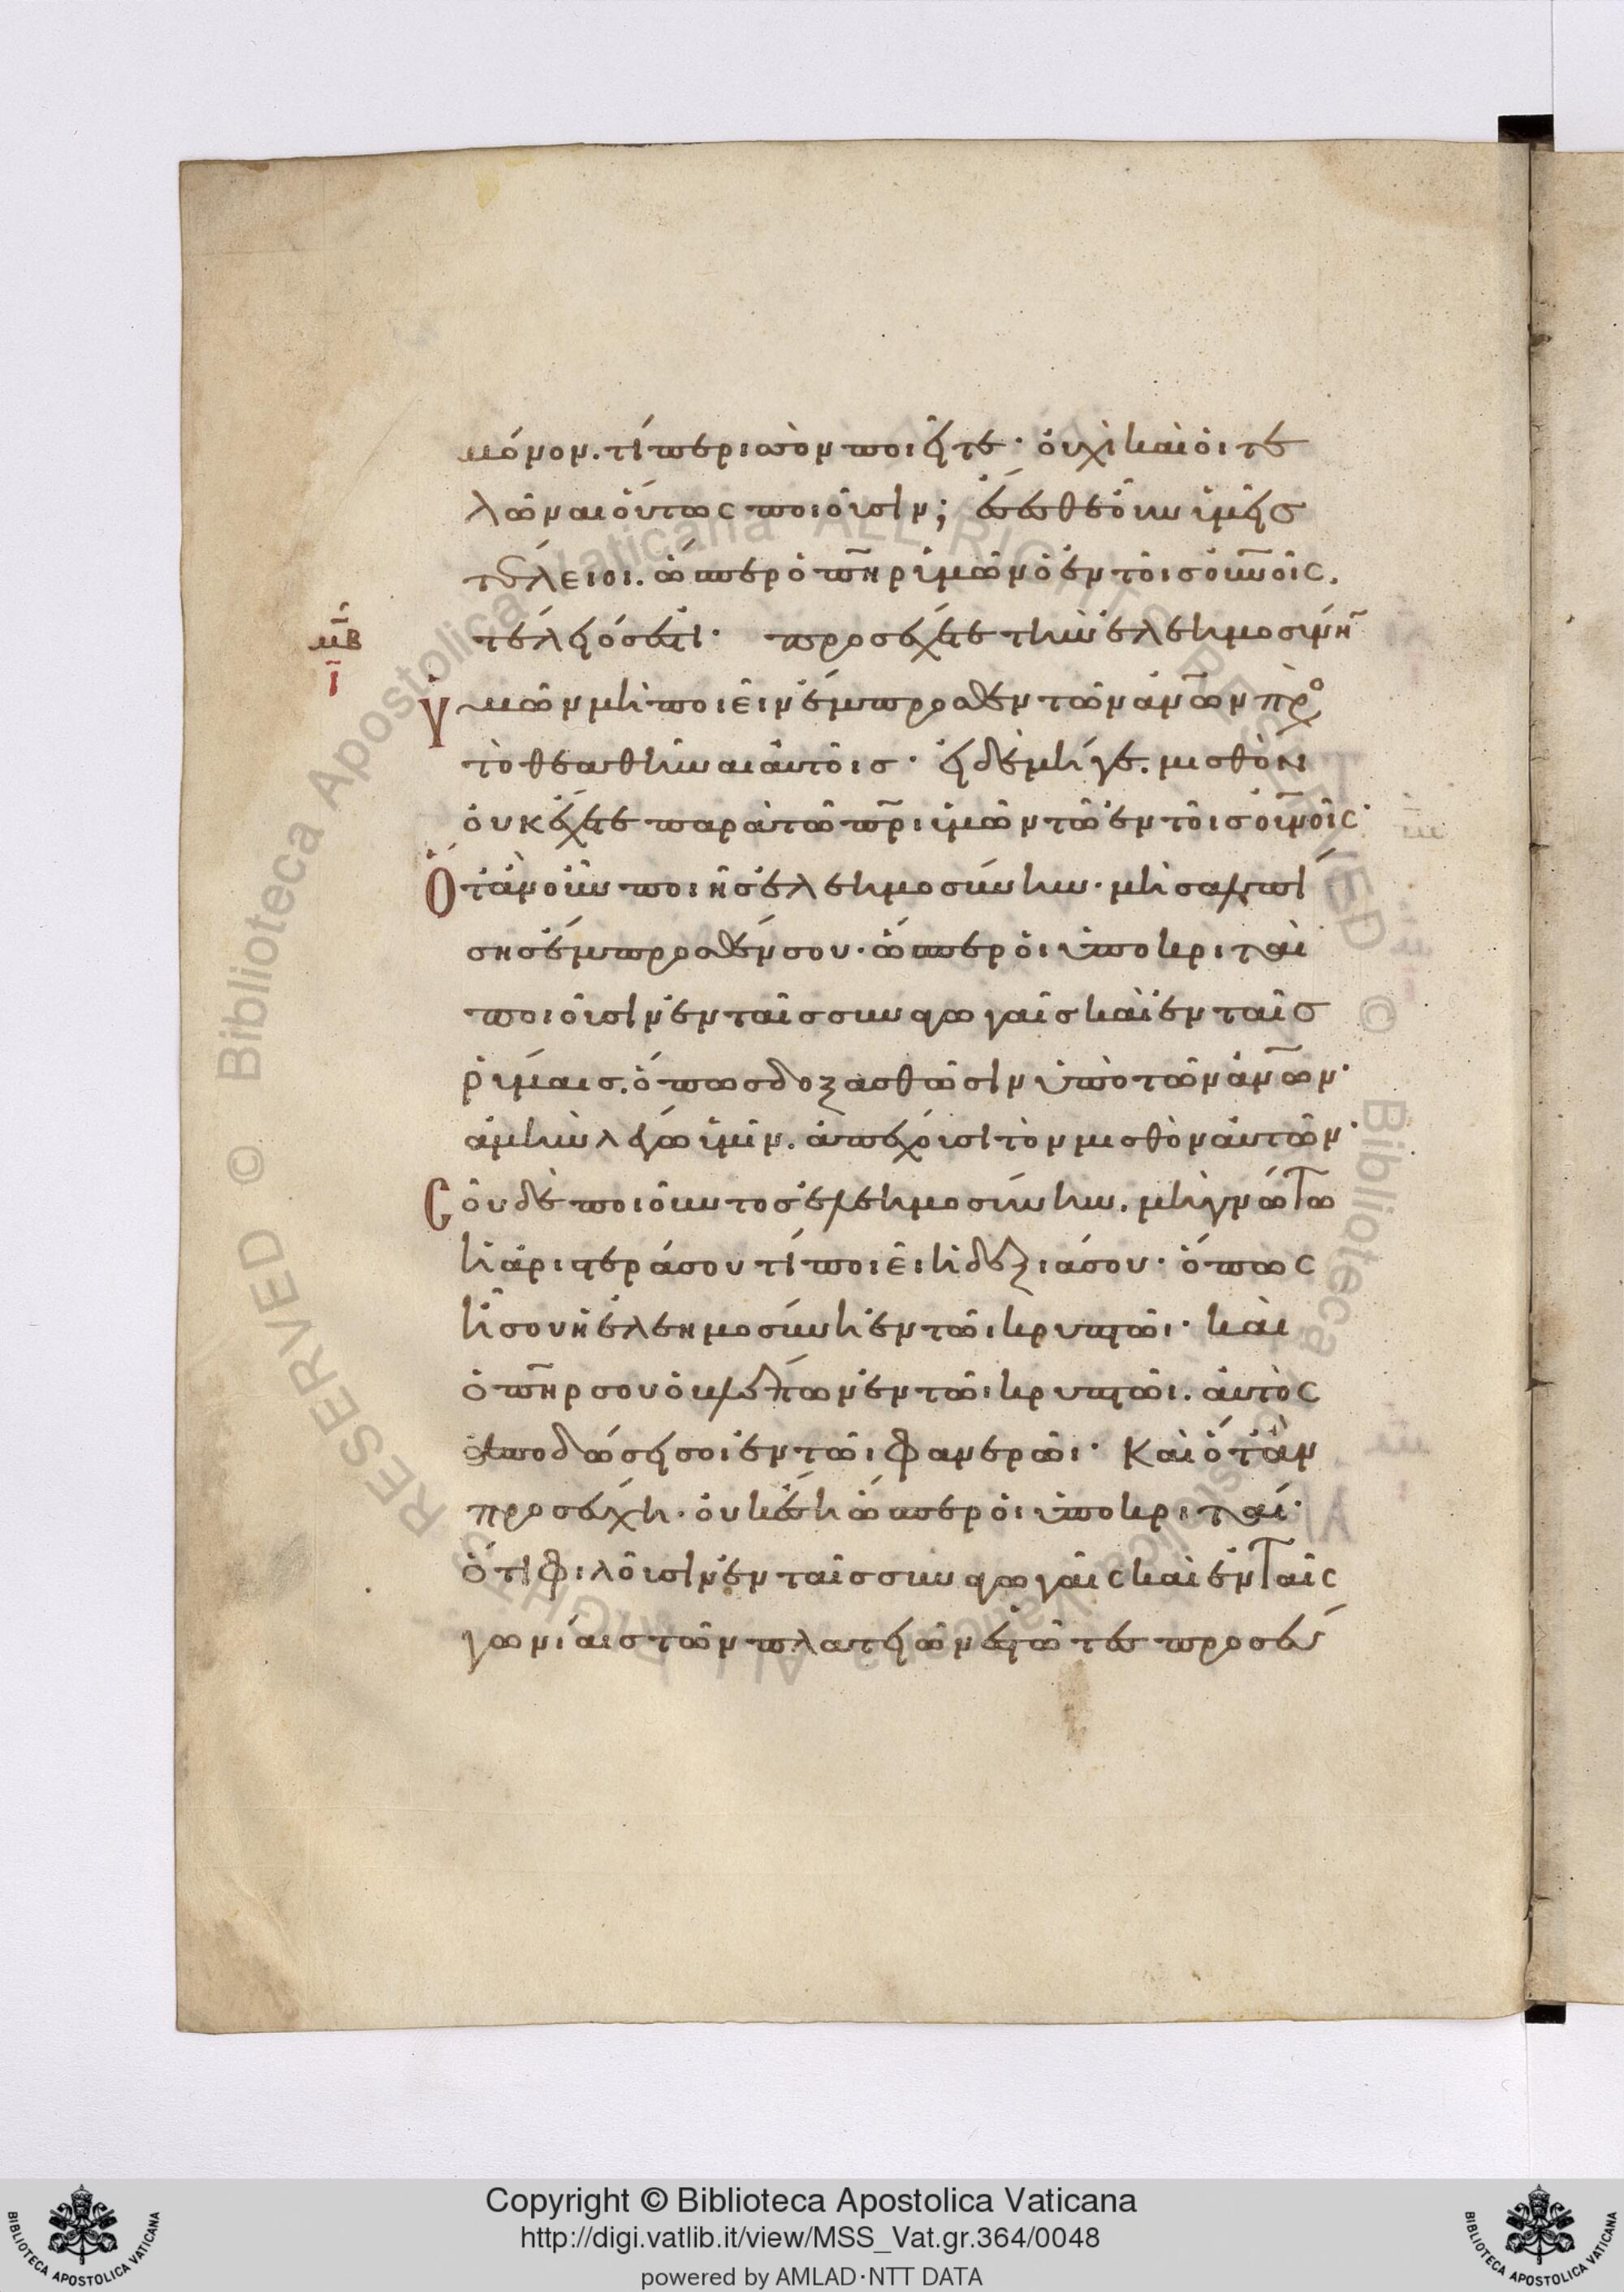 μόνον. τί περισσὸν ποιεῖτε· οὐχὶ καὶ οἱ τε
λῶναι οὕτως ποιοῦσιν; ἔσεσθε οὖν ὑμεῖς
τέλειοι. ὥσπερ ὁ π̅η̅ρ ὑμῶν ὁ ἐν τοῖς ο̅υ̅νοῖς.
μ̅β̅
ι̅
τέλειός ἐστι· προσέχετε τὴν ἐλεημοσύνη̅
ὑμῶν μὴ ποιεῖν ἔμπροσθεν τῶν ἀ̅ν̅ω̅ν πρὸ
τὸ θεαθῆναι αὐτοῖς· εἰ δὲ μήγε. μισθὸν
οὐκ ἔχετε παρὰ τῶ π̅ρ̅ι ὑμῶν τῶ ἐν τοῖς ο̅υ̅νοῖς·
Ὅταν οὖν ποιῆς ἐλεημοσύνην· μὴ σαλπί
σης ἔμπροσθέν σου· ὥσπερ οἱ ὑποκριταὶ
ποιοῦσιν ἐν ταῖς συναγωγαῖς καὶ ἐν ταῖς
ῥύμαις. ὅπως δοξασθῶσιν ὑπὸ τῶν ἀ̅ν̅ω̅ν·
ἀμὴν λέγω ὑμῖν. ἀπέχουσι τὸν μισθὸν αὐτῶν·
Σοῦ δὲ ποιοῦντος ἐλεημοσύνην. μὴ γνώτω
ἡ ἀριστερά σου τί ποιεῖ ἡ δεξιά σου· ὅπως
ἦ σου ἡ ἐλεημοσύνη ἐν τῶι κρυπτῶι· καὶ
ὁ π̅η̅ρ σου ὁ βλέπων ἐν τῶι κρυπτῶι. αὐτὸς
ἀποδώσει σοι ἐν τῶι φανερῶι· Καὶ ὅταν
προσεύχη· οὐκ ἔση ὥσπερ οἱ ὑποκριταί·
ὅτι φιλοῦσιν ἐν ταῖς συναγωγαῖς καὶ ἐν ταῖς
γωνίαις τῶν πλατειῶν ἑστῶτες προσεύ
Copyright © Biblioteca Apostolica Vaticana
http://digi.vatlib.it/view/MSS_Vat.gr.364/0048
powered by AMLAD·NTT DATA
© Biblioteca Apostolica Vaticana ALL RIGHTS RESERVED
© Biblioteca Apostolica Vaticana ALL RIGHTS RESERVED
BIBLIOTECA APOSTOLICA VATICANA
BIBLIOTECA APOSTOLICA VATICANA